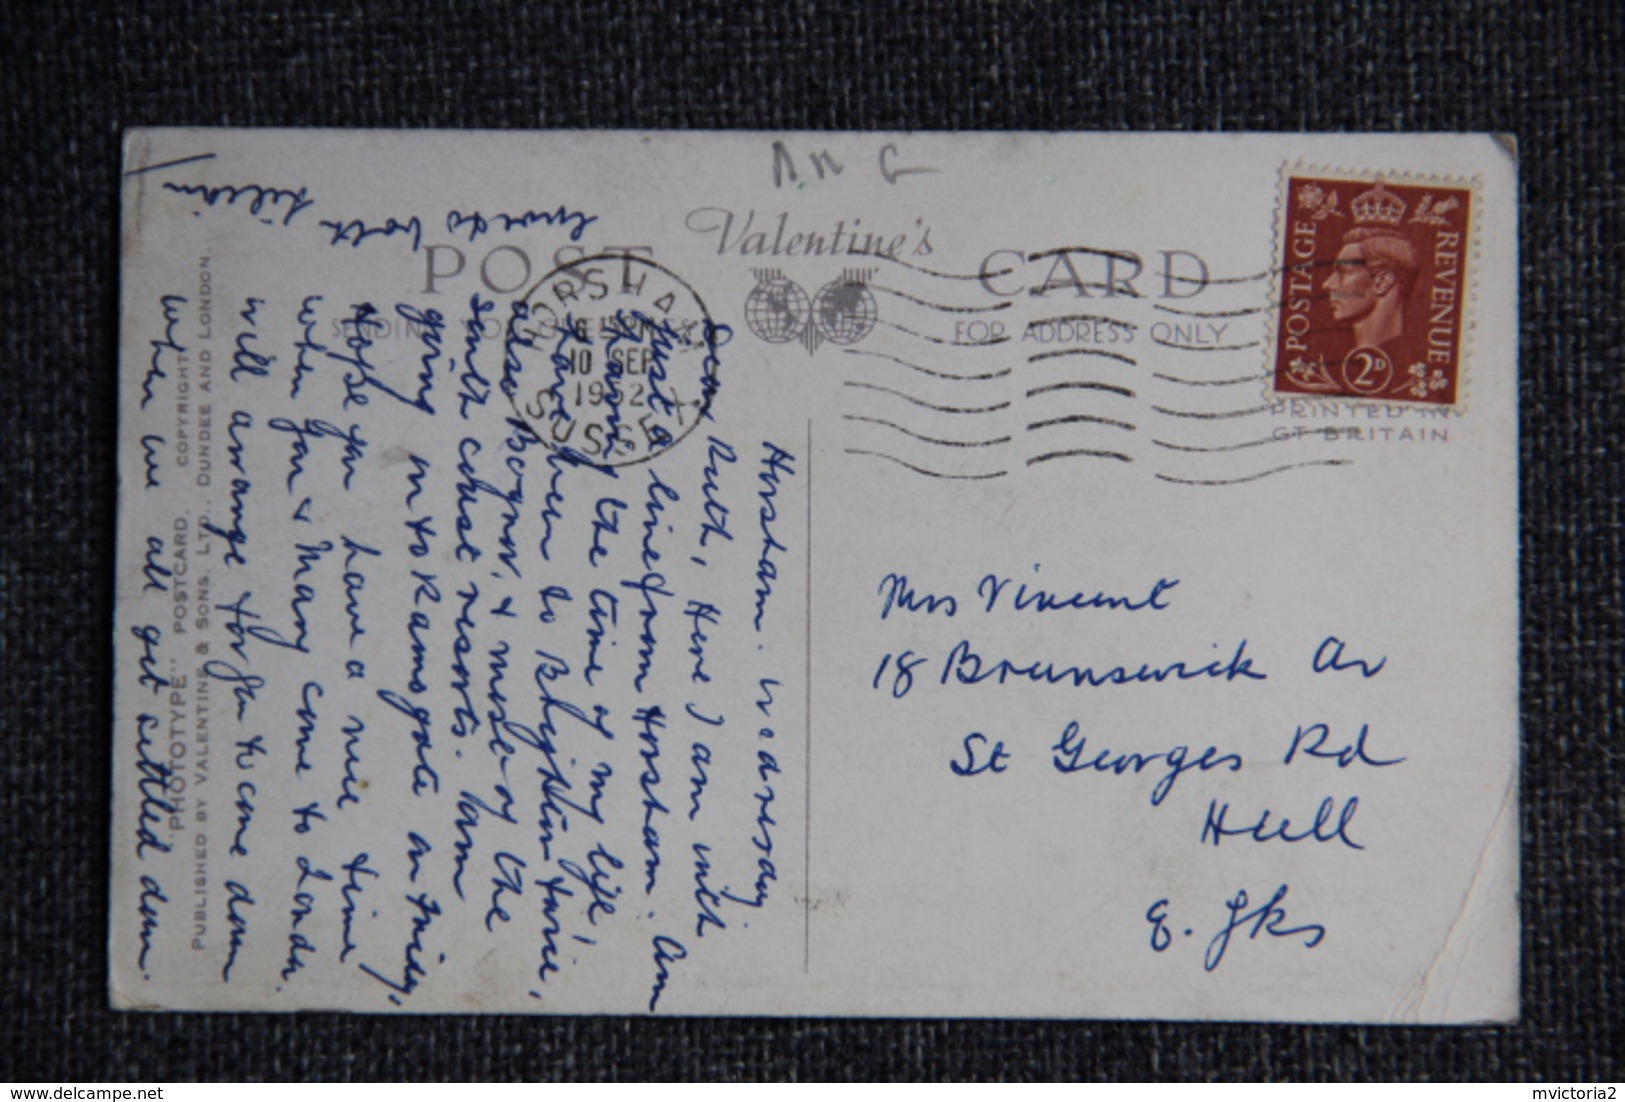 A. N. G
Valentine's
POST CARD
FOR ADDRESS ONLY
POSTAGE
REVENUE
2D
PRINTED IN
GT. BRITAIN
HORSHAM
SUSSEX
10 SEP
1952
Horsham. Wednesday
Dear Ruth, Here I am with
just a line from Horsham. Am
having the time of my life,
have been to Brighton twice,
also Bognor, & most of the
south coast resorts. am
going on to Ramsgate on Friday,
Hope you have a nice time
when you & Mary come to London.
will arrange for you to come down
when we all get settled down.
love to both
Lilian
Mrs Vincent
18 Brunswick Av
St Georges Rd
Hull
E. Yks
"PHOTOTYPE" POSTCARD. COPYRIGHT
PUBLISHED BY VALENTINE & SONS, LTD., DUNDEE AND LONDON.
mvictoria2